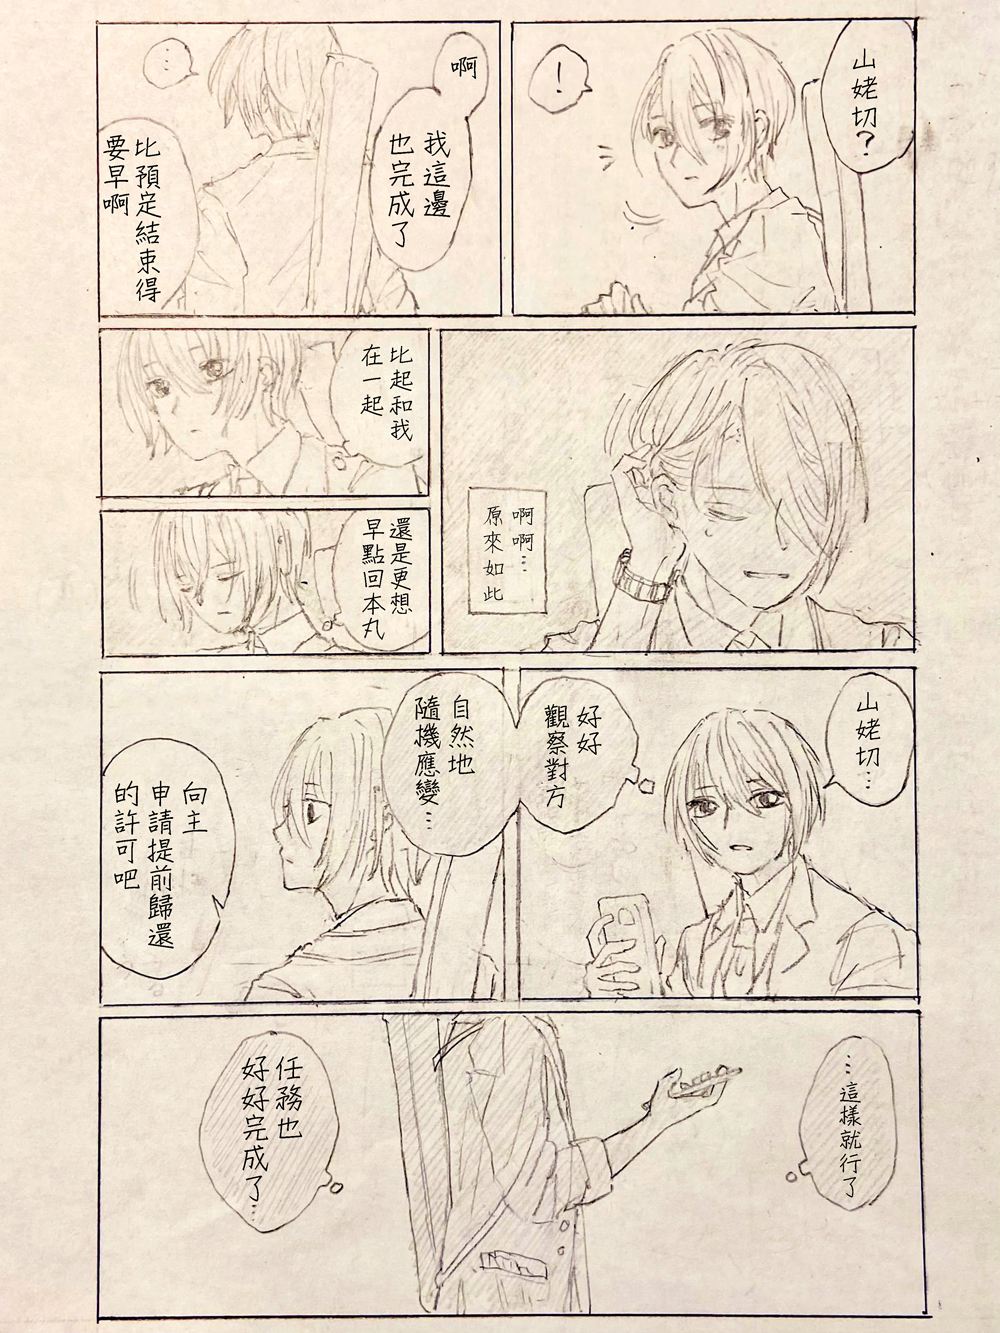 山姥切？
！
啊
我這邊
也完成了
…
比預定結束得
要早啊
啊啊…
原來如此
比起和我
在一起
還是更想
早點回本丸
山姥切…
好好
觀察對方
自然地
隨機應變…
向主
申請提前歸還
的許可吧
…這樣就行了
任務也
好好完成了…